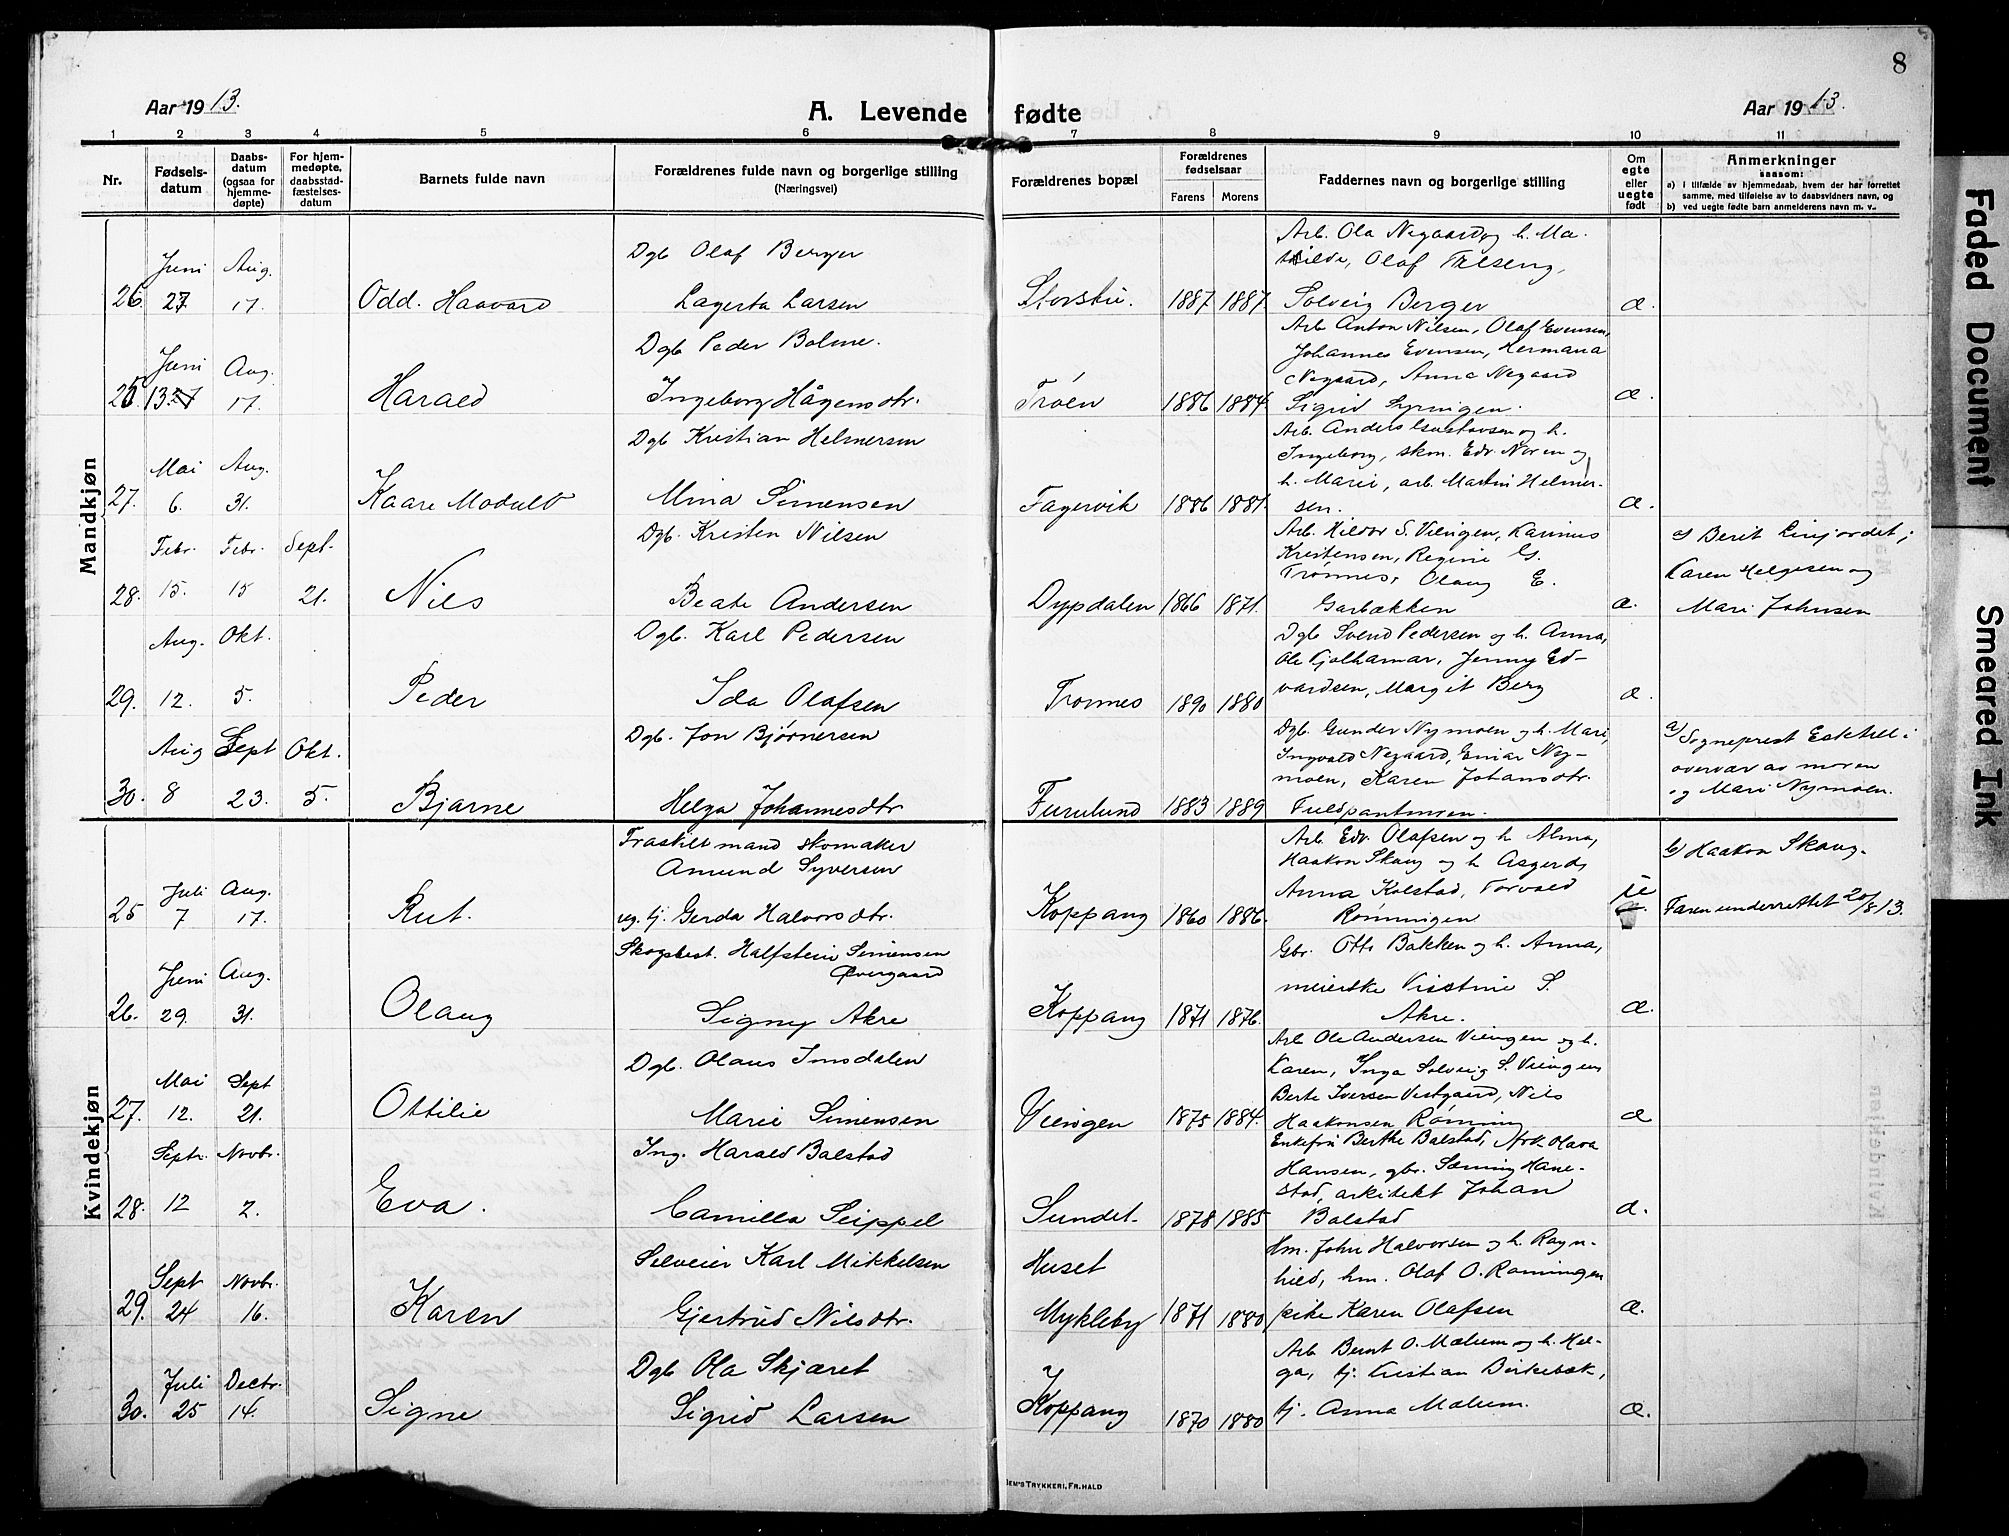 8
Aar 1913.
A. Levende fødte
Aar 1913.
1 2 3 4 5 6 7 8 9 10 11
Nr.
Fødsels-
datum
Daabs-
datum
(ogsaa for
hjemme-
døpte)
For hjem-
medøpte,
daabsstad-
fæstelses-
datum
Barnets fulde navn
Forældrenes fulde navn og borgerlige stilling
(Næringsvei)
Forældrenes bopæl
Forældrenes
fødselsaar
Farens Morens
Faddernes navn og borgerlige stilling
Om
egte
eller
uegte
født
Anmerkninger
saasom:
a) i tilfælde av hjemmedaab, hvem der har forrettet
samme, med tilføielse av to daabsvidners navn, og
b) ved uegte fødte barn anmelderens navn m. v..
Mandkjøn
Dgb Olaf Berger
Juni Aug.
26. 27. 17. Odd. Haavard Lagerta Larsen
Storstu. 1887. 1887.
Arb. Ola Negaard og h. Ma-
tilde, Olaf Treseng,
Solveig Berger
æ.
Dgb Peder Bolme.
Juni Aug.
13. 17. Harald Ingeborg Hågensdtr.
Trøen 1886 1884.
Arb Anton Nilsen, Olaf Evensen,
Johannes Evensen, Hermana
Negaard, Anna Negaard
Sigrid Syringen.
æ.
Dgb Kristian Helmersen
Mai Aug.
27. 6. 31. Kaare Modulv Mina Simensen
Fagervik 1886 1881.
Arb. Anders Gustavsen og h.
Ingeborg, skm. Edv. Noren og
h. Marie, arb. Martin Helmer-
sen.
æ.
Dgb. Kristen Nilsen
Febr. Febr. Sept.
28. 15. 15 21. Nils Beate Andersen
Dypdalen 1866 1871.
Arb. Hildor S. Vilingen, Karinus
Kristensen, Regine G.
Trønnes, Olaug E.
Garbækken
æ.
a) Berit Linjordet;
Karen Helgesen og
Mari Johnsen
Dgb. Karl Pedersen
Aug. Okt.
29. 12. 5. Peder Ida Olafsen
Tronnes 1890 1880
Dgb Svend Pedersen og h. Anna,
Ole Kjølhamar, Jenny Ed-
vardsen, Margit Berg
æ.
Dgb. Jon Bjørnersen
Aug Sept Okt.
30. 8 23. 5. Bjarne Helga Johannesdtr
Furulund 1883 1889
Dgb. Gunder Nymoen og h. Mari,
Ingvald Negaard, Einar Ny-
moen, Karen Johansdtr.
Fuldpantmoen.
a) Sogneprest Eskeli i
overvær av moren
og Mari Nymoen.
Kvindekjøn
Fraskilt mand skomaker
Amund Syversen
Juli Aug.
25 7 17. Rut. ug. tj. Gerda Halvorsdtr.
Koppang 1860 1886.
Arb. Edv. Olafsen og h. Alma,
Haakon Skaug og h Asgerd,
Anna Kolstad, Torvald
Rønningen
ue
b) Haakon Skaug.
Faren underrettet 20/8 13.
Skogsbest. Halfstein Simensen
Øvergaard
Juni Aug.
26. 29. 31. Olaug Signy Akre
Koppang 1871 1876.
Gbr. Otto Bakken og h. Anna,
meierske Kristine S.
Akre.
æ.
Dgb. Olaus Imsdalen
Mai Sept
27. 12. 21. Ottilie Marie Simensen
Vilingen 1875 1884.
Arb Ole Andersen Vilingen og h.
Karen, Inga Solveig S. Vilingen
Berte Iversen Vestgaard, Nils
Haakonsen Rønning
æ
Ing. Harald Balstad
Septr. Novbr.
28. 12 2. Eva. Camilla Seippel
Sundet 1878 1885
Enkefru Berthe Balstad, frk. Olava
Hansen, gbr. Sæming Hane-
stad, arkitekt Johan
Balstad
æ.
Selveier Karl Mikkelsen
Sept Novbr.
29. 24 16. Karen Gjertrud Nilsdtr.
Huset
Mykleby 1871 1880
Hm. John Halvorsen og h. Ragn-
hild, hm. Olaf O. Romingen
pike Karen Olafsen
æ.
Dgb Ola Skjæret
Juli Decbr.
30. 25 14. Signe Sigrid Larsen
Koppang 1870 1880
Arb Bernt O. Mælum og h. Hel-
ga, tj. Kristian Birkebæk,
tj. Anna Mælum.
æ.
IEM'S TRYKKERI, FR. HALD
Faded Document
Smeared Ink